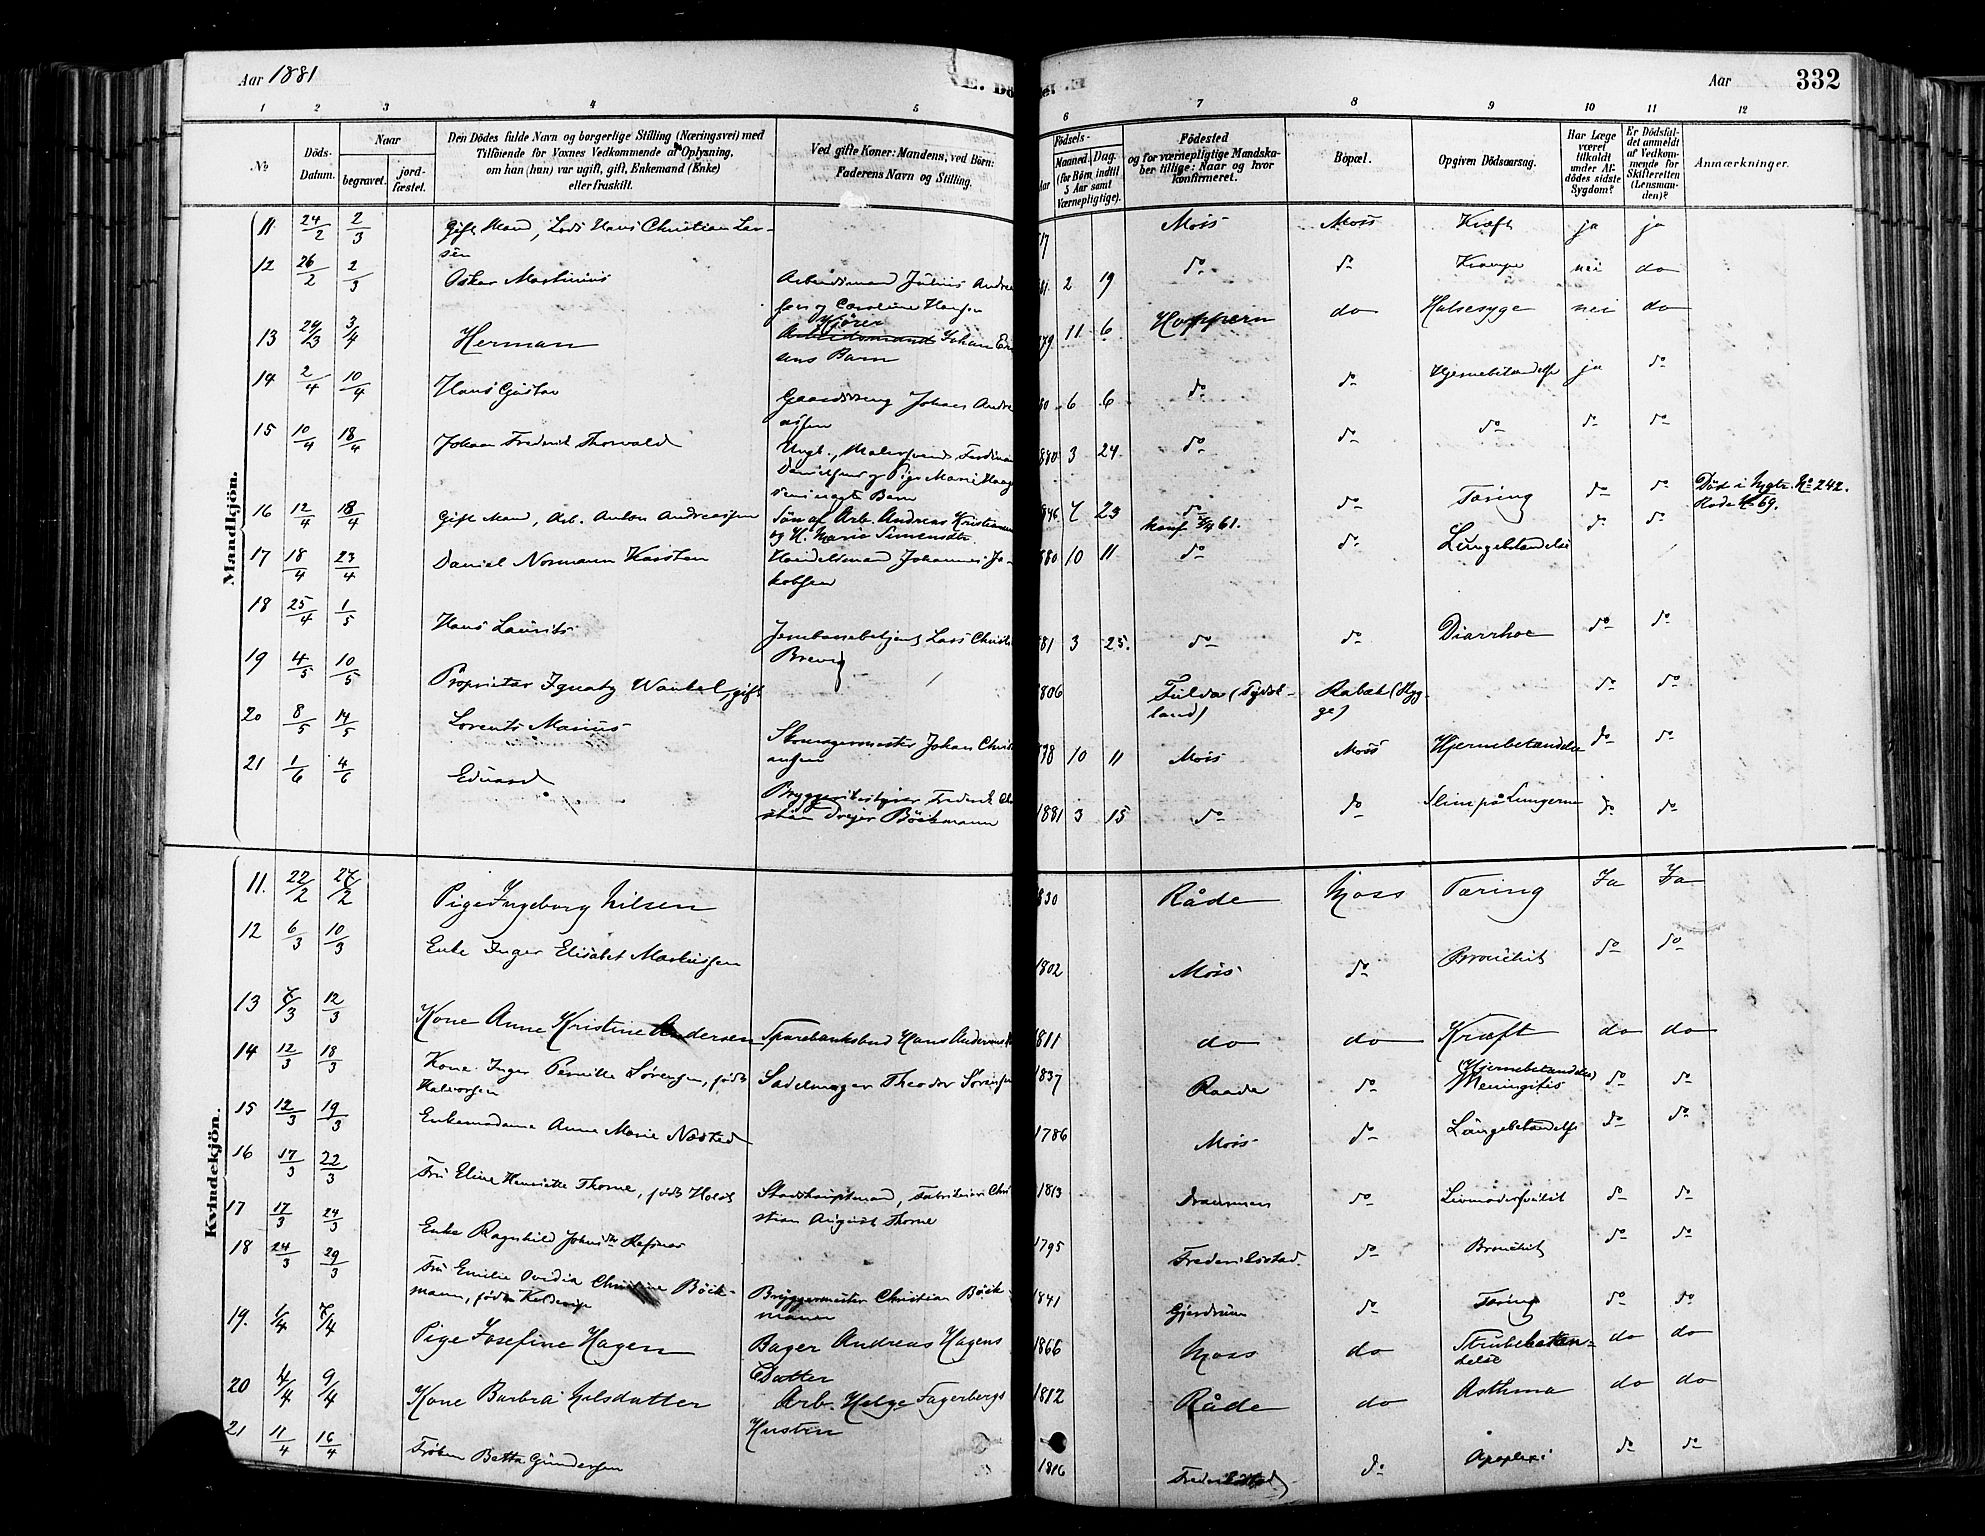 Aar 1881
E.
Aar
332
1 2 3 4 5 6 7 8 9 10 11 12
No
Döds-
Datum.
Naar
begravet.
jord-
fæstet.
Den Dödes fulde Navn og borgerlige Stilling (Næringsvei) med
Tilföiende for Voxnes Vedkommende af Oplysning,
om han (hun) var ugift, gift, Enkemand (Enke)
eller fraskilt.
Ved gifte Koner: Mandens, ved Börn:
Faderens Navn og Stilling.
Födsels-
Aar
Maaned. Dag.
(for Börn indtil
5 Aar samt
Værnepligtige).
Födested
og for værnepligtige Mandska-
ber tillige: Naar og hvor
konfirmeret.
Bopæl.
Opgiven Dödsaarsag.
Har Læge
været
tilkaldt
under Af-
dödes sidste
Sygdom?
Er Dödsfal-
det anmeldt
af Vedkom-
mende for
Skifteretten
(Lensman-
den)?
Anmærkninger.
Mandkjön.
11. 24/2 2/3 Gift Mand, Lods Hans Christian Lar-
sen 17 Moss Moss Kræft ja ja
12 26/2 2/3 Oskar Martinius Arbeidsmand Julius Andrea
sen og Caroline Hansen 2 19 do do Krampe nei do
13 29/3 3/4 Herman Kjörer
Arbeidsmand Johan Er
sens Barn 79 11 6 Hoppern do Halsesyge nei do
14 2/4 10/4 Hans Gustav Gaardsdreng Johan Andre
assen 80 6 6 do do Hjernebetændelse ja do
15 10/4 18/4 Johan Frederik Thorvald Ungk., Malersvend Ferdinan
Danielsen og Pige Marie Haag
Barn 1880 3 24 do do do do do
16 12/4 18/4 Gift Mand, Arb. Anton Andreassen Søn af Arb. Andreas Kristiansen
og H. Marie Simensdtr. 1846 7 23 do
konf 61. do Tæring do do Død i
No 242.
69.
17 18/4 23/4 Daniel Normann Karsten Handelsmand Johannes Ja-
kobsen 1880 10 11 do do Lungebetændelse do do
18 25/4 1/5 Hans Laurits Jernbanebetjent Lars Christi
Brevig 81 3 25. do do Diarrhoe do do
19 4/5 10/5 Proprietær Ignatz Wankel, gift 1806 Fulda (Tydsk-
land) Kabæk (Ryg-
ge) do do
20 8/5 14/5 Lorents Marius Skomagermester Johan Christi
ansen 78 10 11 Moss Moss Hjernebetændelse do do
21 1/6 4/6 Eduard Bryggeribestyrer Frederik Chri
stian Dreyer Böckmann 1881 3 15 do do Slim på Lungerne do do
Kvindekjön.
11. 22/2 27/2 Pige Ingeborg Nilsen 830 Råde Moss Tæring Ja Ja
12 6/3 10/3 Enke Inger Elisabet Markussen 1802 Moss do Bronchit do do
13 7/3 12/3 Kone Anne Kristine Andersen Sparebanksbud Hans Andersens 1811 do do Kræft do do
14 12/3 18/3 Kone Inger Pernille Sörensen, födt
Halvorsen Sadelmager Theodor Sörensen 1837 Raade do (Hjernebetændelse)
Meningitis do do
15 12/3 19/3 Enkemadame Anne Marie Næsted 1786 Moss do Lungebetændelse do do
16 17/3 22/3 Fru Eline Henriette Thorne, födt Holst Stadshauptmand, Fabrikeier Chri
stian August Thorne 1813 Drammen do do do
17 17/3 24/3 Enke Ragnhild Johnsdtr Refsnæs 1795 Frederikstad. do Bronchit do do
18 24/3 29/3 Fru Emilie Ovidia Christine Böck-
mann, födt Bryggermester Christian Böck-
mann 1841 Gjerdrum do Tæring do do
19. 1/4 7/4 Pige Josefine Hagen Bager Andreas Hagens
Datter 1866 Moss do Strubebetæn-
delse do do
20 4/4 9/4 Kone Barbra Nilsdatter Arb. Helge Fagerbergs
Hustru 1812 Råde do Asthma do do
21 11/4 16/4 Fröken Betta Gundersen 1816 do Apoplexi do do